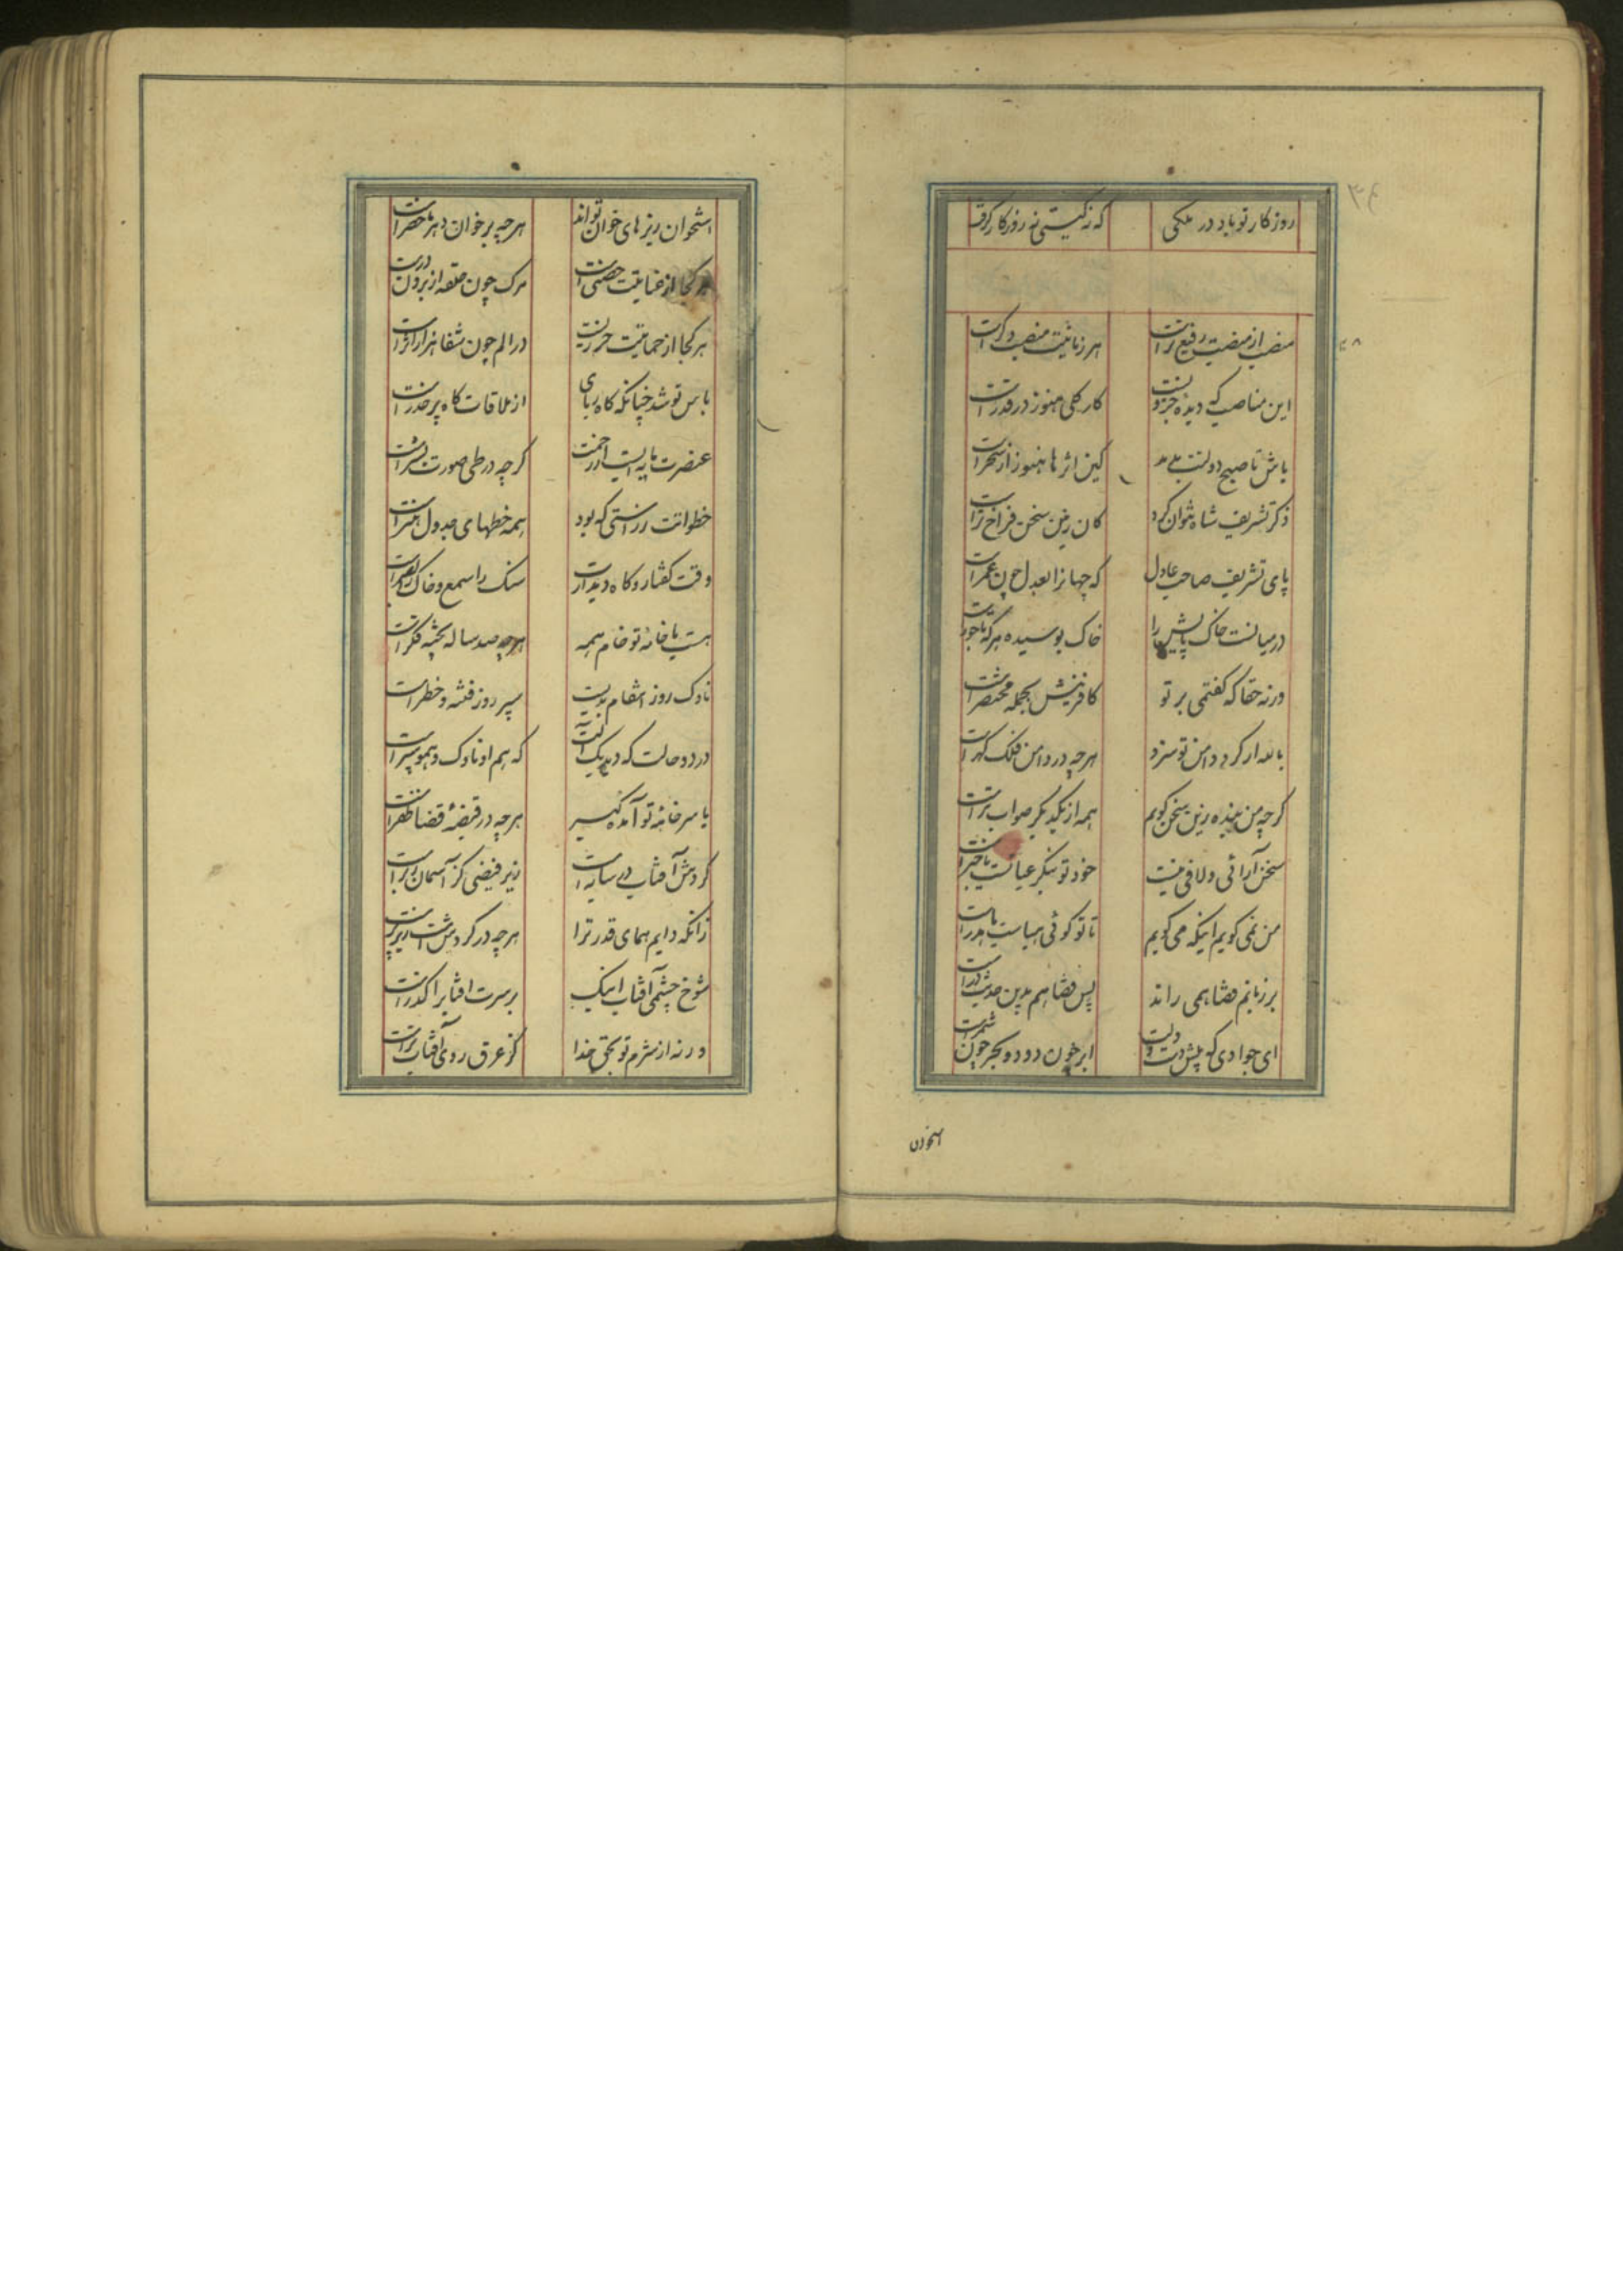 ۳۴
روزکار تو باد در ملکی که نه کیتی نه روزکار کرفت
منصب از منصبت رفیع‌تر است هر زمانیت منصب دکر است
این مناصب که دیدهٔ جزویست کار کلی هنوز در قدر است
باش تا صبح دولتت بدمد کین اثرها هنوز از سحر است
ذکر تشریف شاه نتوان کرد کان زین سخن فراخ‌تر است
پای تشریف صاحب عادل که جهانرا بعدل چون عمر است
در میانست خاک پایش را خاک بوسیده هر که تاجور است
ورنه حقا که کفتمی بر تو کافرینش بجمله مختصر است
بالله ار کرد دامن تو سزد هرچه در دامن فلک کهر است
کرچه من بنده زین سخن کویم همه از یکدیکر صواب‌تر است
سخن آرائی و لافی نیست خود تو بنکر عیانست یا خبر است
من نمی‌کویم اینکه می‌کویم تا تو کوئی هباست یا هدر است
بر زبانم قضا همی راند پس قضا هم بدین حدیث در است
ای جوادی که پیش دست و دلت ابر چون دود و بحر چون شمر است
استخوان
استخوان ریزهای خوان تواند هرچه بر خوان دهر ماحضر است
هر کجا از عنایتت حصنی است مرک چون حلقه از برون در است
هر کجا از حمایتت حرزیست در الم چون شفا هزار اثر است
باس تو شد چنانکه کاه ربای از ملاقات کاه بر حذر است
عنصرت مایه ایست از رحمت کرچه در طی صورت بشر است
خطواتت ز راستی که بود همه خطهای جدول هنر است
وقت کفتار و کاه دیدارت سنک را سمع و خاک را بصر است
هست با خامهٔ تو خام همه هرچه صد ساله پخته فکر است
ناوک روز انتقام بدیست سپر روز فتنه و خطر است
در دو حالت که دید یک آلت که هم او ناوک و همو سپر است
با سر خامهٔ تو آمده کیر هرچه در قبضهٔ قضا ظفر است
کردش آفتاب در سایه است زیر فیضی کز آسمان زبر است
زانکه دایم همای قدر ترا هرچه در کردش است زیر پر است
شوخ چشمی آفتاب اینک بر سرت آفتاب را کذر است
ورنه از شرم تو بحق خدا کز عرق روی آفتاب تر است